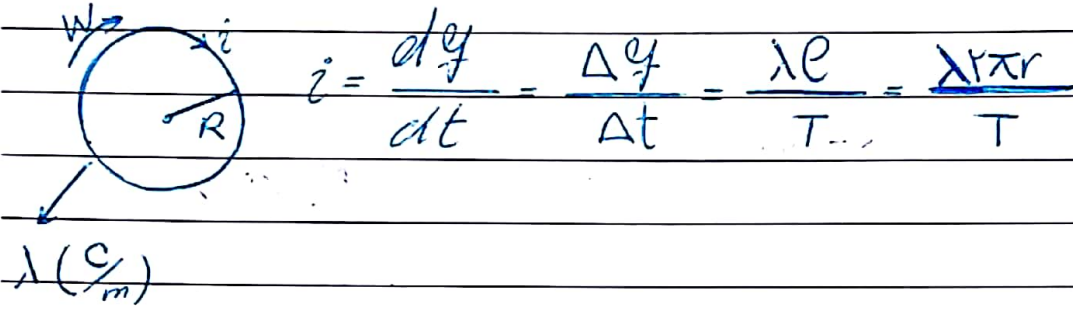 W i
i = dq/dt = Δq/Δt = λℓ/T = λ۲πr/T
R
λ (C/m)